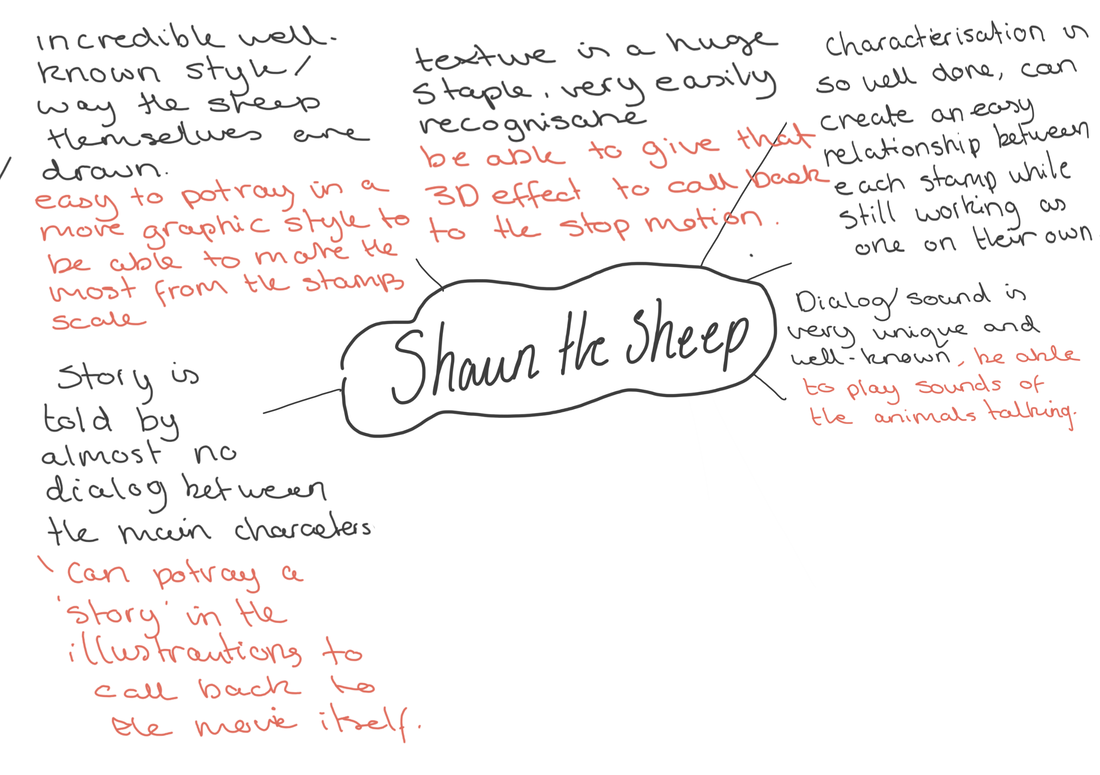 incredible well-
known style/
way the sheep
themselves are
drawn.
easy to potray in a
more graphic style to
be able to make the
most from the stamp
scale
texture is a huge
staple, very easily
recognisable
be able to give that
3D effect to call back
to the stop motion.
Characterisation is
so well done, can
create an easy
relationship between
each stamp while
still working as
one on their own
Shaun the Sheep
Dialog/sound is
very unique and
well-known, be able
to play sounds of
the animals talking.
Story is
told by
almost no
dialog between
the main characters
Can potray a
'story' in the
illustrautions to
call back to
the movie itself.